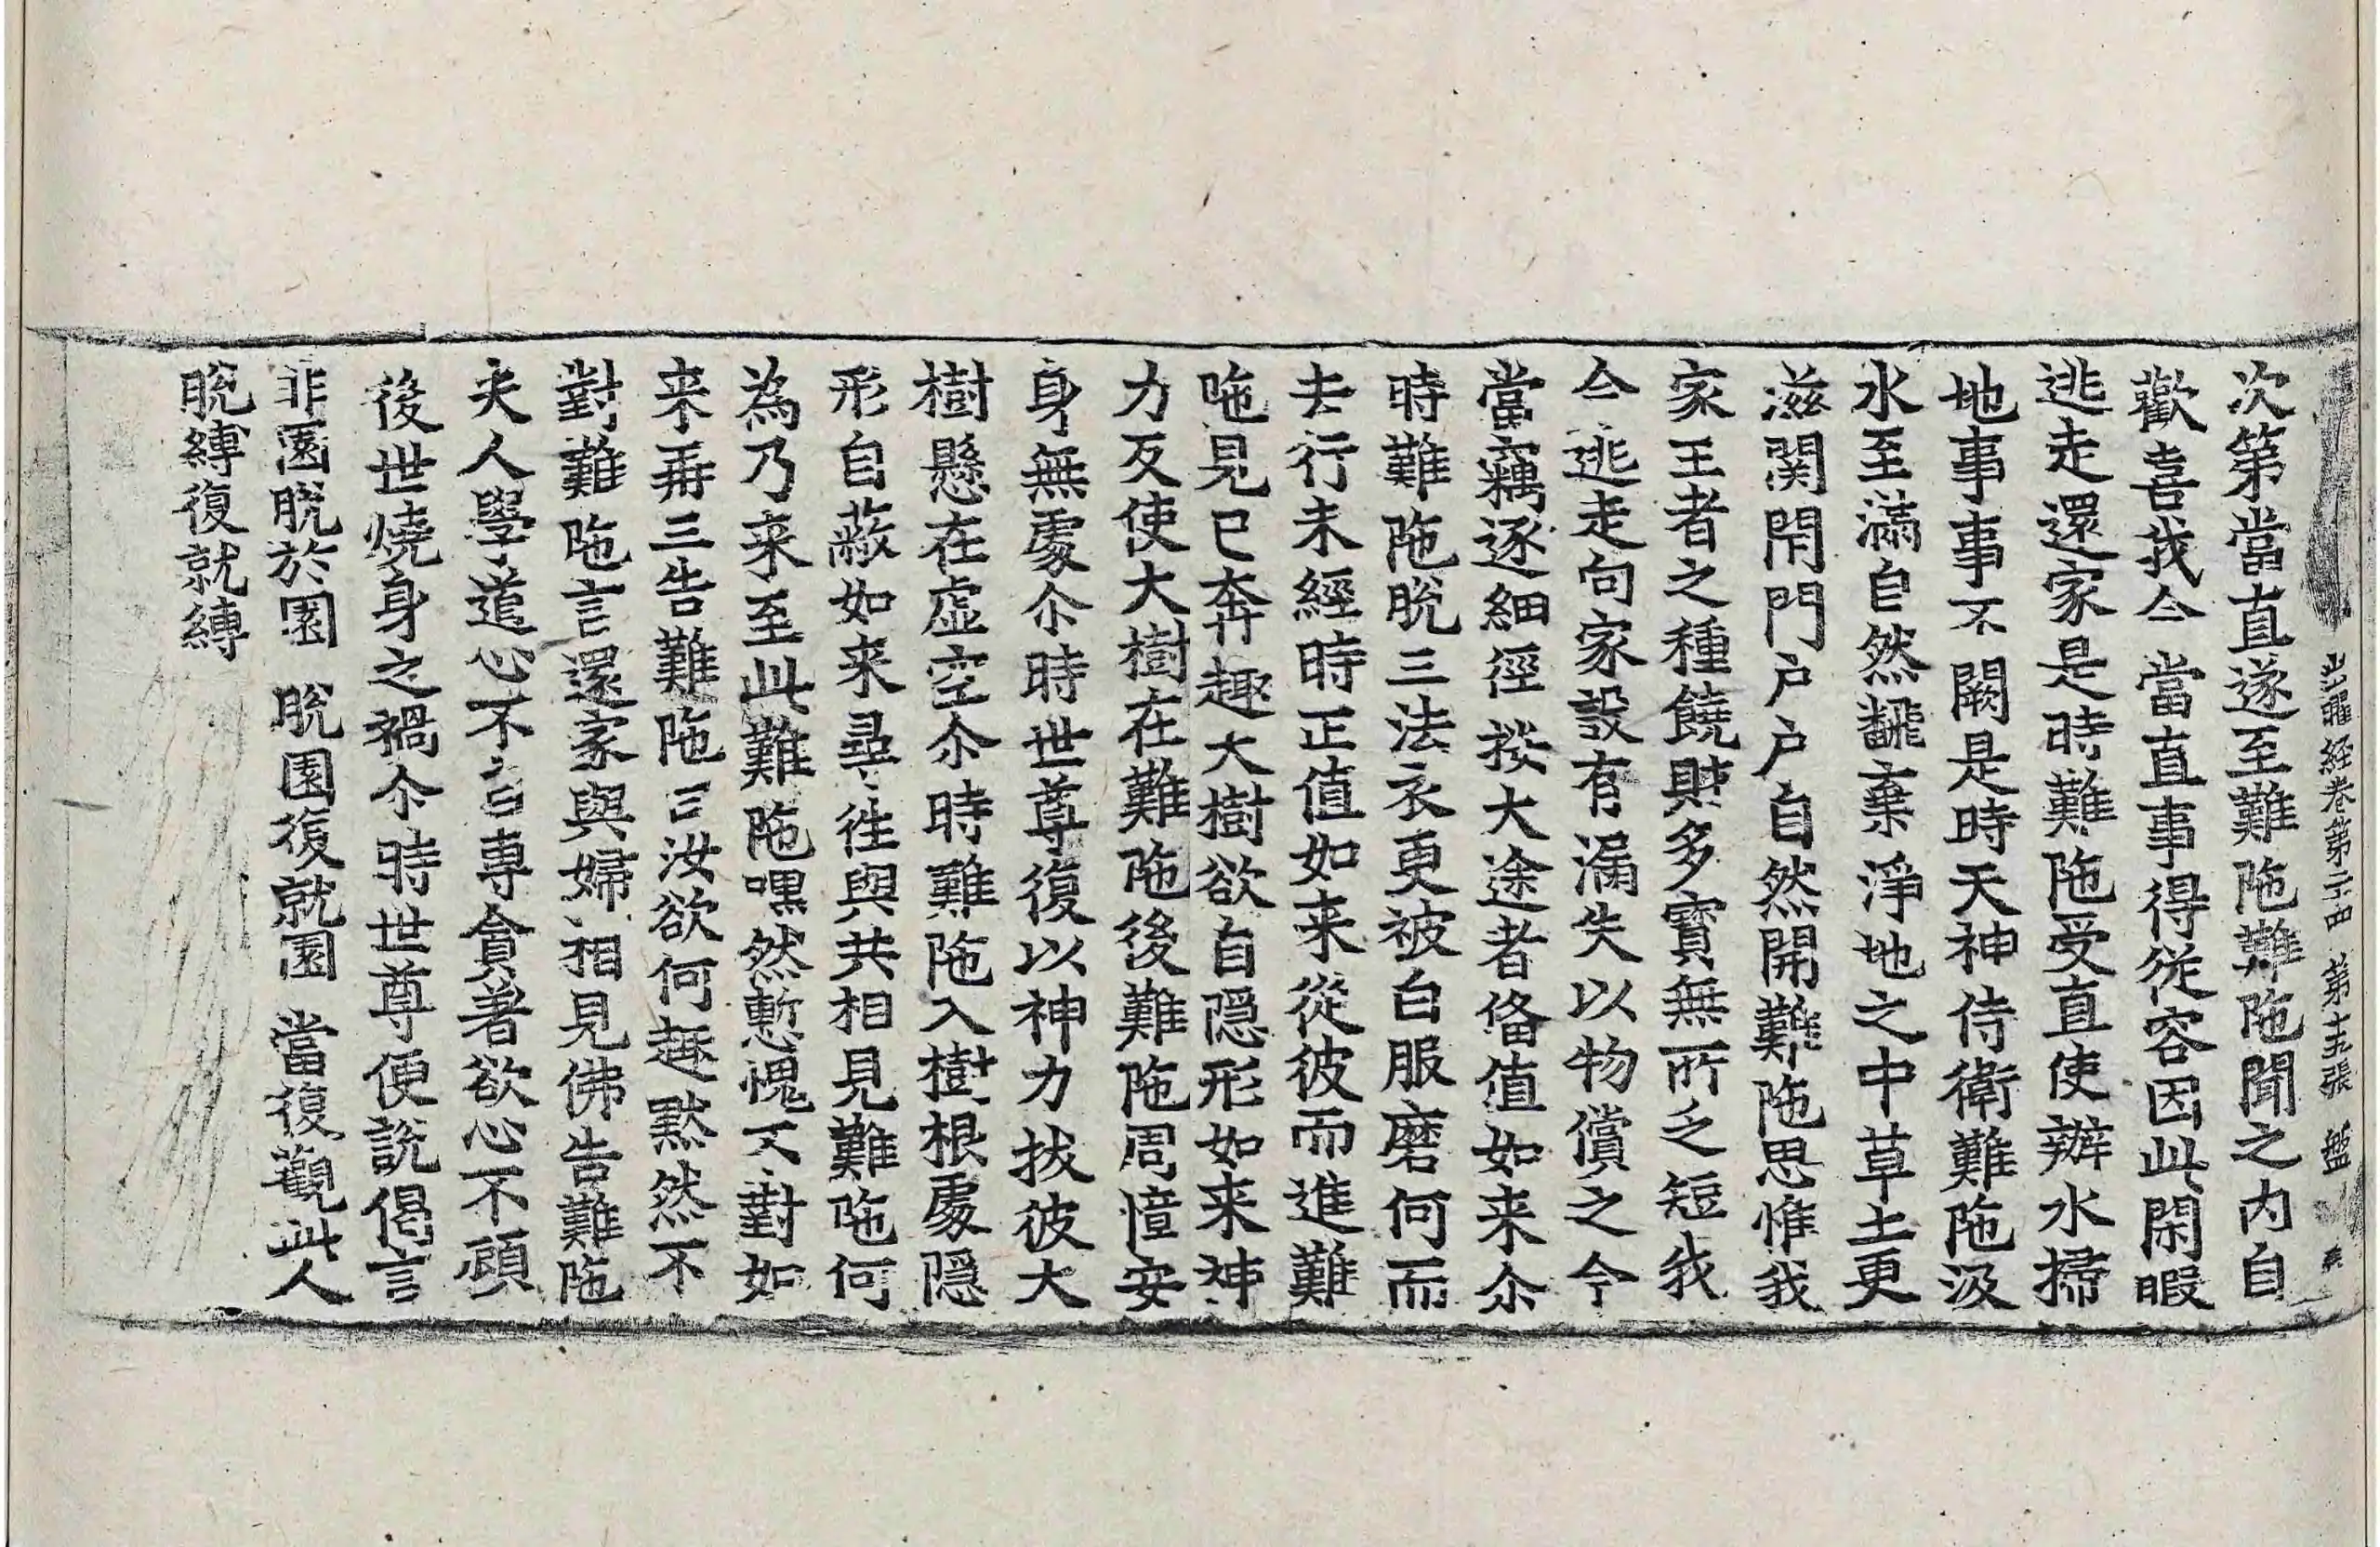 出曜経卷第二十四 第十五張 盤
次第當直遂至難陁難陁聞之内自
歡喜我今當直事得從容因此閑暇
逃走還家是時難陁受直使辦水掃
地事事不闕是時天神侍衛難陁汲
水至滿自然飜棄淨地之中草土更
滋関閇門戶戶自然開難陁思惟我
家王者之種饒財多寶無所乏短我
今逃走向家設有漏失以物償之今
當竊逐細徑捨大途者俻值如来尒
時難陁脫三法衣更被白服磨何而
去行未經時正值如来從彼而進難
陁見已奔趣大樹欲自隱形如来神
力反使大樹在難陁後難陁周慞安
身無處尒時世尊復以神力拔彼大
樹懸在虛空尒時難陁入樹根處隱
形自蔽如来尋徃與共相見難陁何
為乃来至此難陁嘿然慙愧不對如
来再三告難陁曰汝欲何趣黙然不
對難陁言還家與婦相見佛告難陁
夫人學道心不自專貪著欲心不顧
後世燒身之禍尒時世尊便說偈言
非園脫於園 脫園復就園 當復觀此人
脫縛復就縛